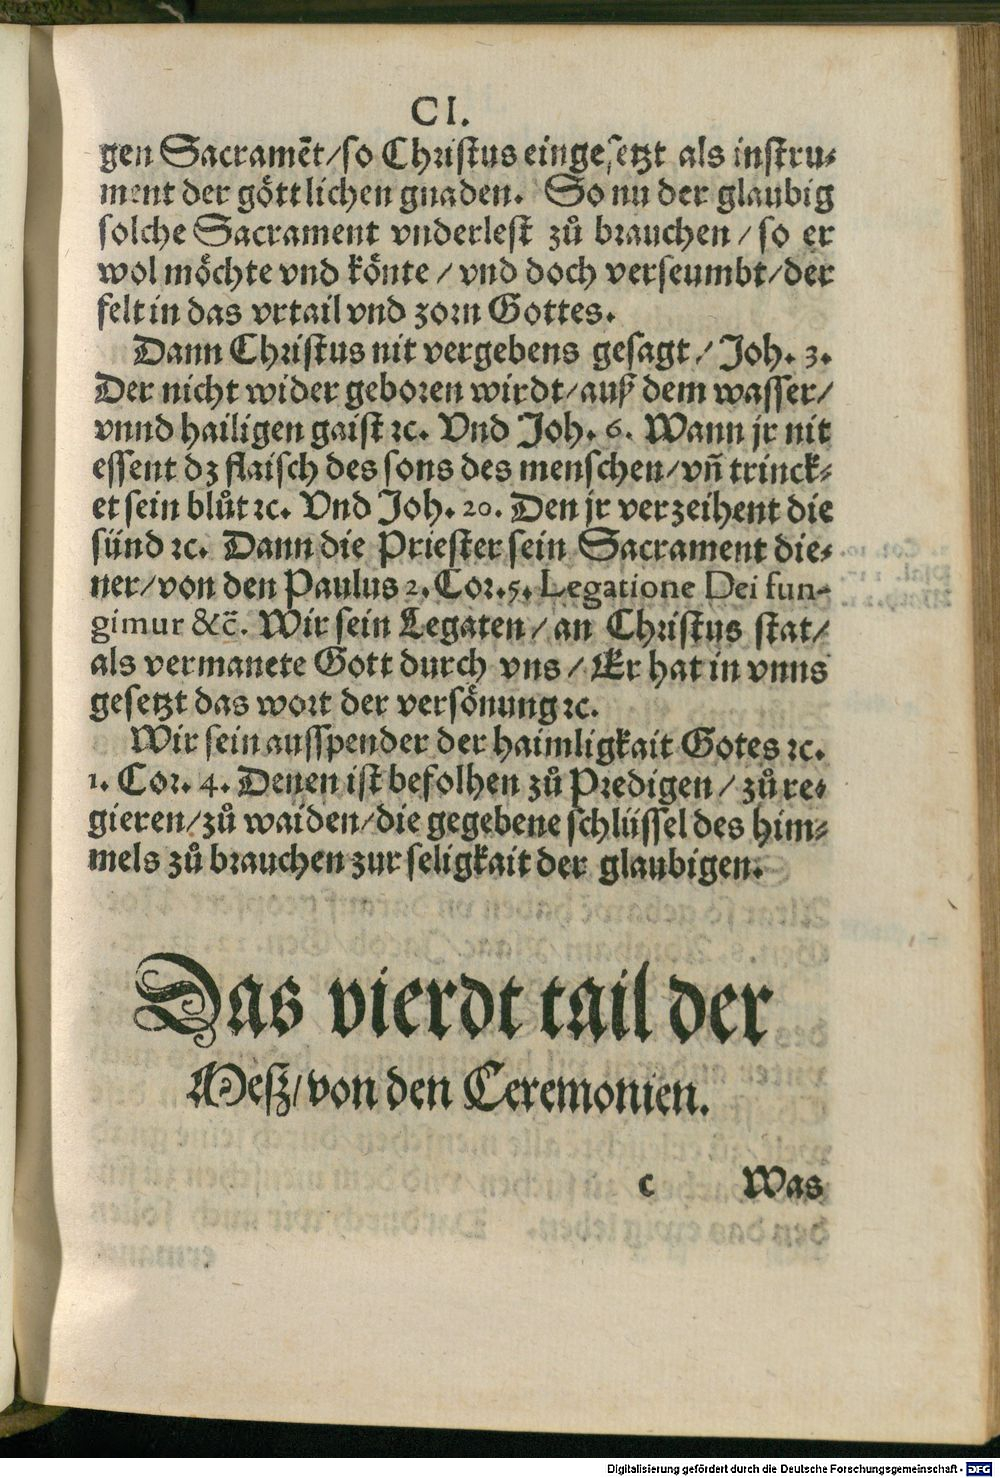 CI.
gen Sacramēt/so Christus eingesetzt als instru⸗
ment der göttlichen gnaden. So nu der glaubig
solche Sacrament vnderlest zů brauchen / so er
wol möchte vnd könte / vnd doch verseumbt/der
felt in das vrtail vnd zorn Gottes.
Dann Christus nit vergebens gesagt / Joh. 3.
Der nicht wider geboren wirdt/auß dem wasser/
vnnd hailigen gaist ꝛc. Vnd Joh. 6. Wann jr nit
essent dz flaisch des sons des menschen/vñ trinck⸗
et sein blůt ꝛc. Vnd Joh. 20. Den jr verzeihent die
sünd ꝛc. Dann die Priester sein Sacrament die⸗
ner/von den Paulus 2. Cor. 5. Legatione Dei fun-
gimur &c̄. Wir sein Legaten / an Christus stat/
als vermanete Gott durch vns / Er hat in vnns
gesetzt das wort der versönung ꝛc.
Wir sein ausspender der haimligkait Gotes ꝛc.
1. Cor. 4. Denen ist befolhen zů Predigen / zů re⸗
gieren/zů waiden/die gegebene schlüssel des him⸗
mels zů brauchen zur seligkait der glaubigen.
Das vierdt tail der
Meß/von den Ceremonien.
c Was
Digitalisierung gefördert durch die Deutsche Forschungsgemeinschaft - DFG